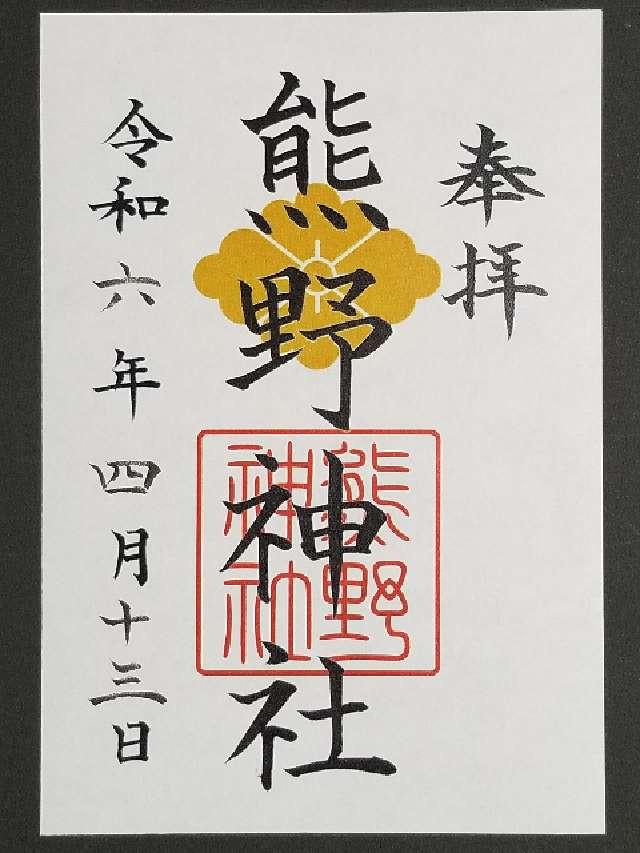 奉拝
熊野神社
熊野
神社
令和六年四月十三日